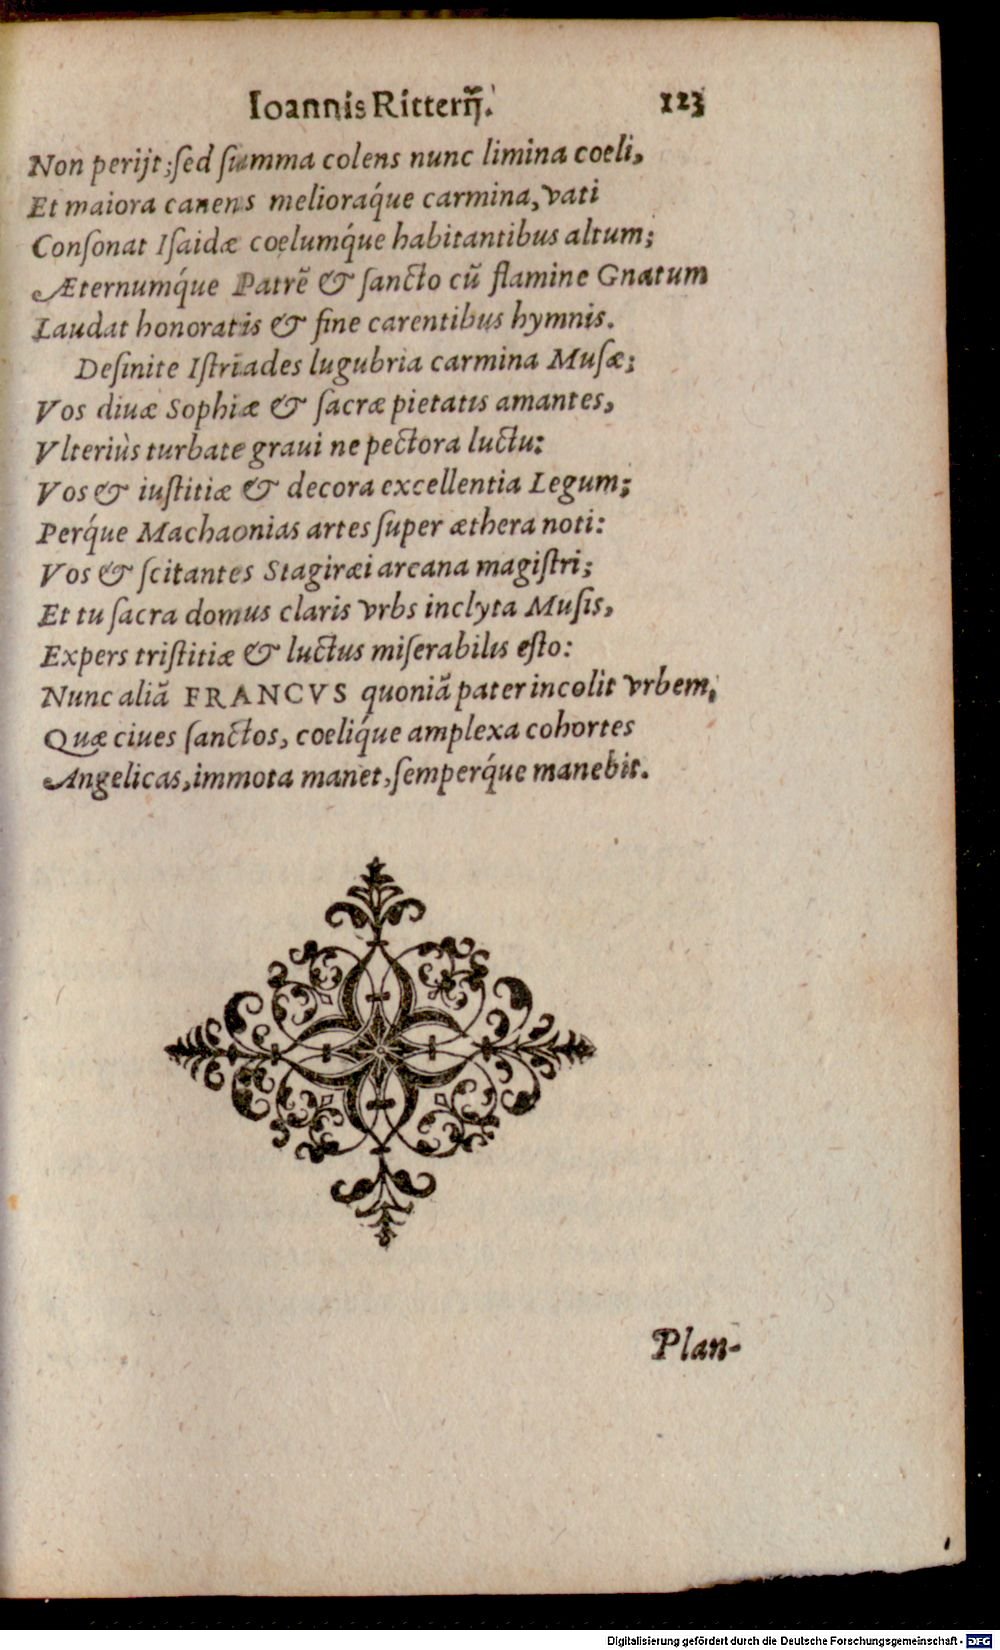 Ioannis Ritterij̃. 123
Non perijt; ſed ſumma colens nunc limina coeli,
Et maiora canens melioraq́ue carmina, vati
Conſonat Iſaidæ coelumq́ue habitantibus altum;
Æternumq́ue Patrẽ & ſancto cũ flamine Gnatum
Laudat honoratis & fine carentibus hymnis.
Deſinite Iſtriades lugubria carmina Muſæ;
Vos diuæ Sophiæ & ſacræ pietatis amantes,
Vlteriùs turbate graui ne pectora luctu:
Vos & iuſtitiæ & decora excellentia Legum;
Perq́ue Machaonias artes ſuper æthera noti:
Vos & ſcitantes Stagiræi arcana magiſtri;
Et tu ſacra domus claris vrbs inclyta Muſis,
Expers triſtitiæ & luctus miſerabilis eſto:
Nunc aliã FRANCVS quoniã pater incolit vrbem,
Quæ ciues ſanctos, coeliq́ue amplexa cohortes
Angelicas, immota manet, ſemperq́ue manebit.
Plan-
Digitalisierung gefördert durch die Deutsche Forschungsgemeinschaft - DFG